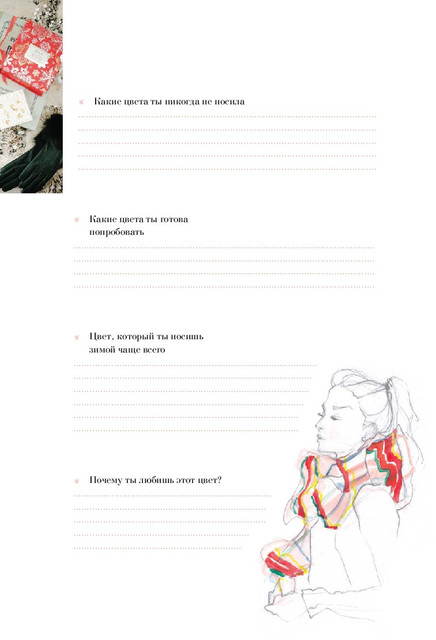 Какие цвета ты никогда не носила
Какие цвета ты готова
попробовать
Цвет, который ты носишь
зимой чаще всего
Почему ты любишь этот цвет?